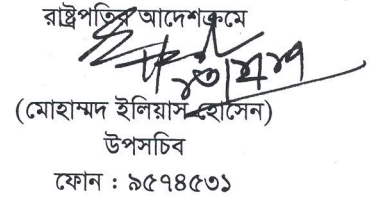 রাষ্ট্রপতির আদেশক্রমে
(মোহাম্মদ ইলিয়াস হোসেন)
উপসচিব
ফোন : ৯৫৭৪৫৩১